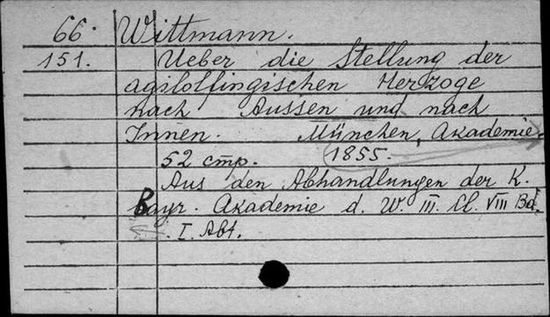 66. Wittmann.
151. Ueber die Stellung der
agilolfingischen Herzoge
nach Aussen und nach
Innen. München, Akademie
52 cmp. 1855.
Aus den Abhandlungen der K.
Bayr. Akademie d. W. III. Cl. VIII Bd.
I. Abt.